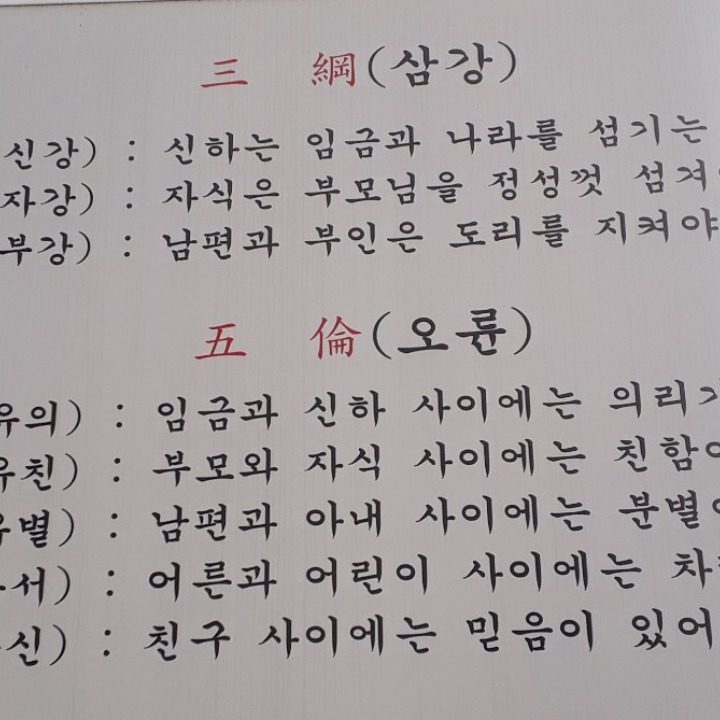 三 綱(삼강)
신강) : 신하는 임금과 나라를 섬기는
자강) : 자식은 부모님을 정성껏 섬겨
부강) : 남편과 부인은 도리를 지켜야
五 倫(오륜)
유의) : 임금과 신하 사이에는 의리
유친) : 부모와 자식 사이에는 친함
별) : 남편과 아내 사이에는 분별
서) : 어른과 어린이 사이에는
신) : 친구 사이에는 믿음이 있어